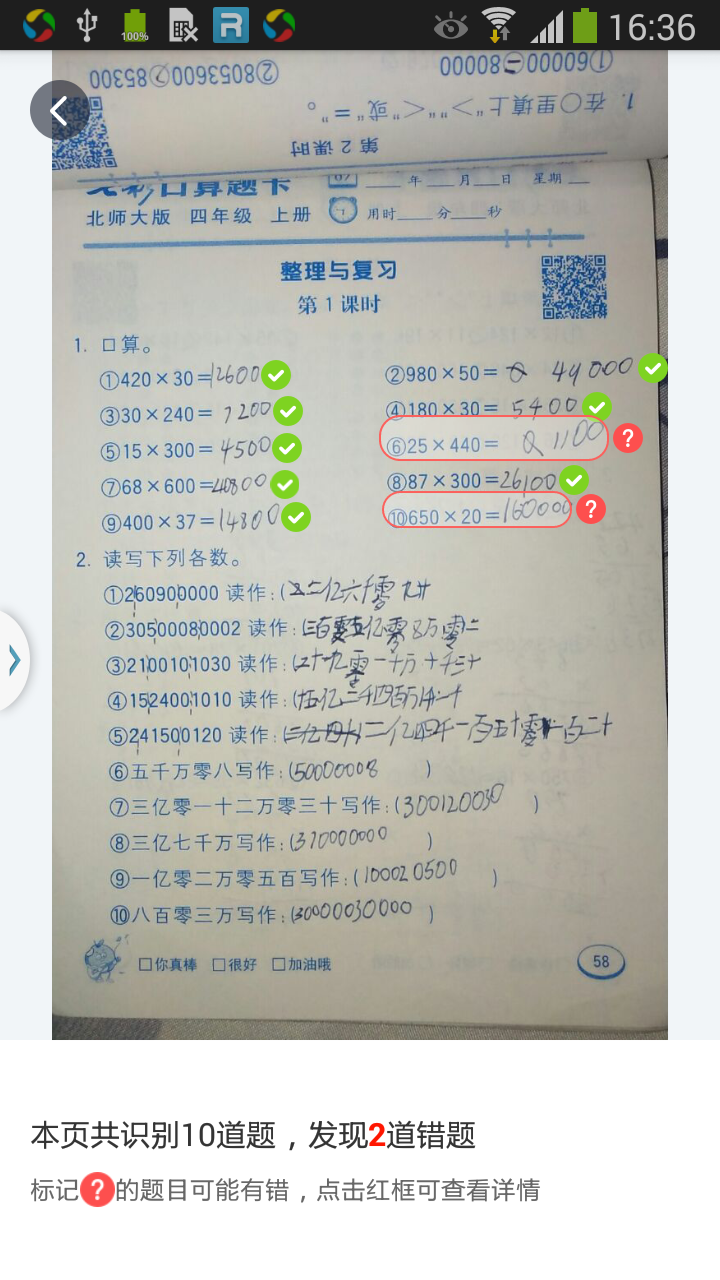 100%
16:36
①60000=80000
②8053600>85300
1. 在○里填上">""<"或"="。
第 2 课时
口算题卡
年 月 日 星期
北师大版 四年级 上册 用时 分 秒
整理与复习
第 1 课时
1. 口算。
①420×30=12600 ②980×50= 49000
③30×240= 7200 ④180×30= 5400
⑤15×300= 4500 ⑥25×440= 1100
⑦68×600=40800 ⑧87×300=26100
⑨400×37=14800 ⑩650×20=160000
2. 读写下列各数。
①260900000 读作:(二亿六千零九十
②30500080002 读作:(三百零五亿零8万零二
③2100101030 读作:(二十九零一十万十千三十
④1524001010 读作:(
⑤241500120 读作:( 二亿四千一百五十零一百二十
⑥五千万零八写作:(50000008 )
⑦三亿零一十二万零三十写作:(300120030 )
⑧三亿七千万写作:(370000000 )
⑨一亿零二万零五百写作:(100020500 )
⑩八百零三万写作:(30000030000 )
你真棒 很好 加油哦 58
本页共识别10道题，发现2道错题
标记?的题目可能有错，点击红框可查看详情